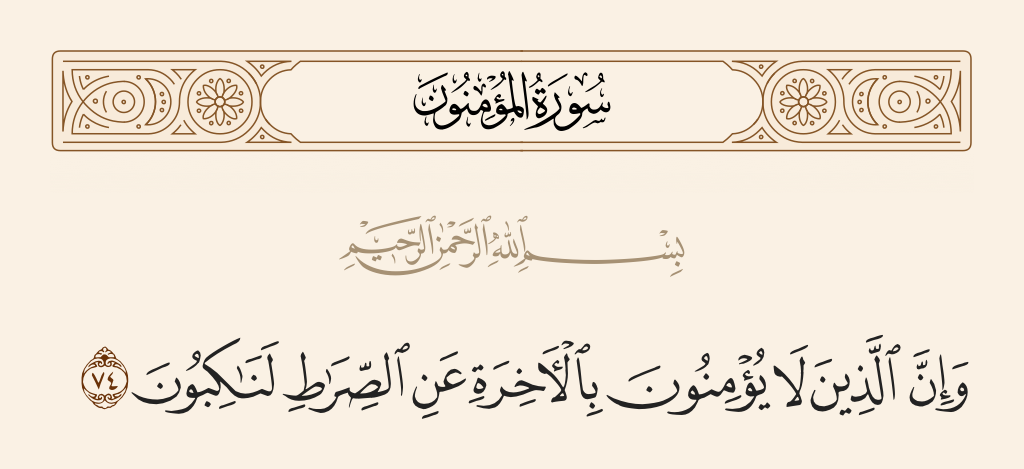 سُورَةُ الْمُؤْمِنُونَ
بِسْمِ ٱللَّهِ ٱلرَّحْمَٰنِ ٱلرَّحِيمِ
وَإِنَّ ٱلَّذِينَ لَا يُؤْمِنُونَ بِٱلْأَخِرَةِ عَنِ ٱلصِّرَٰطِ لَنَـٰكِبُونَ ٧٤